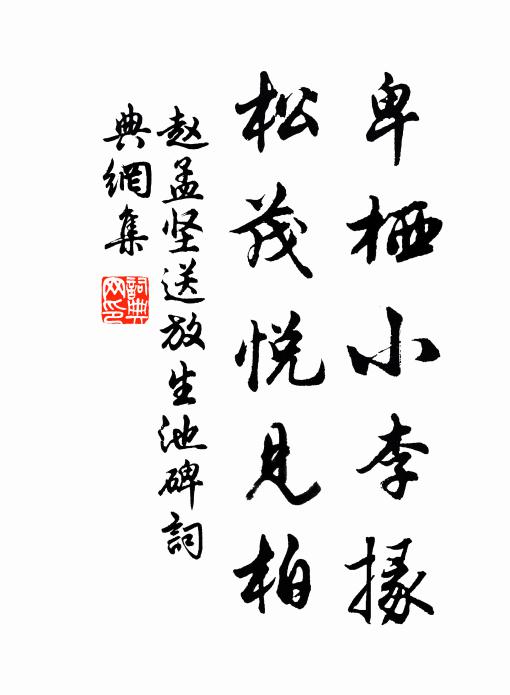 卑栖小李掾
松茂悦見柏
赵孟坚送放生池碑詞
典網集
詞典网印